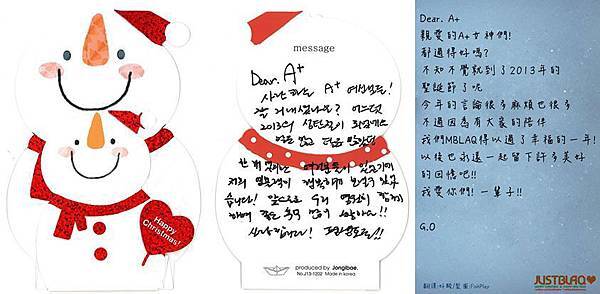 Happy
Christmas!
message
Dear. A+
사랑하는 A+ 여신분들!
잘 지내셨나요? 어느덧
2013의 성탄절이
한 해
저희 엠블랙이 행복하게 보낼수 있었
습니다! 앞으로도 우리 영원히 함께
하며 좋은 추억 많이
사랑합니다!
produced by Jongibae.
No.J13-1202 Made in korea
Dear. A+
親愛的A+女神們!
都過得好嗎?
不知不覺就到了2013年的
聖誕節了呢
今年的言論很多麻煩也很多
不過因為有大家的陪伴
我們MBLAQ得以過了幸福的一年!
以後也永遠一起留下許多美好
的回憶吧!!
我愛你們! 一輩子!!
G.O
JUSTBLAQ